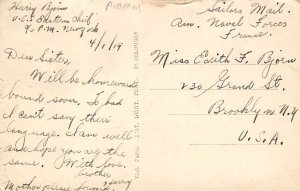 Harry Bjorn
U.S.S Eastern Chief
℅ P.M. New York
4/1/19
Dear Sister,
Will be homeward
bound soon. Too bad
I can't say their
language. I am well
and hope you are the
same. With love
brother
Harry
Mother please forward
Sailors Mail.
Am. Naval Forces
France.
Miss Edith F. Bjorn
230 Grand St.
Brooklyn N.Y
U.S.A.